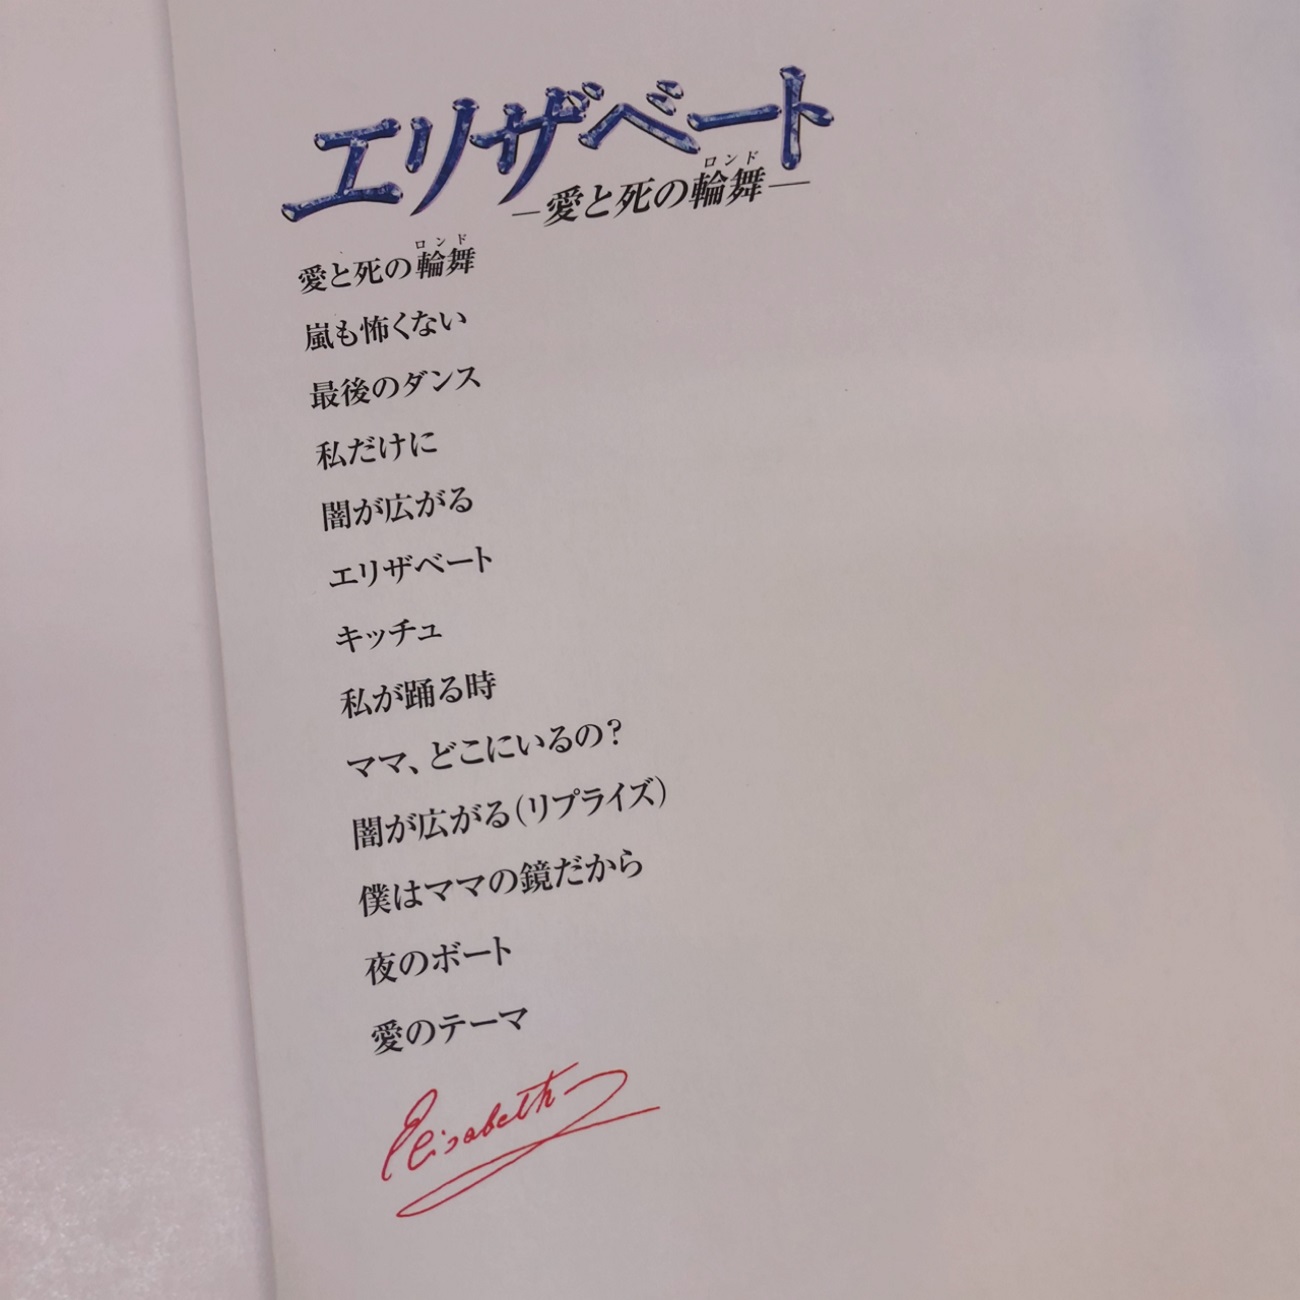 エリザベート
―愛と死の輪舞―
ロンド
愛と死の輪舞
ロンド
嵐も怖くない
最後のダンス
私だけに
闇が広がる
エリザベート
キッチュ
私が踊る時
ママ、どこにいるの?
闇が広がる(リプライズ)
僕はママの鏡だから
夜のボート
愛のテーマ
Elisabeth